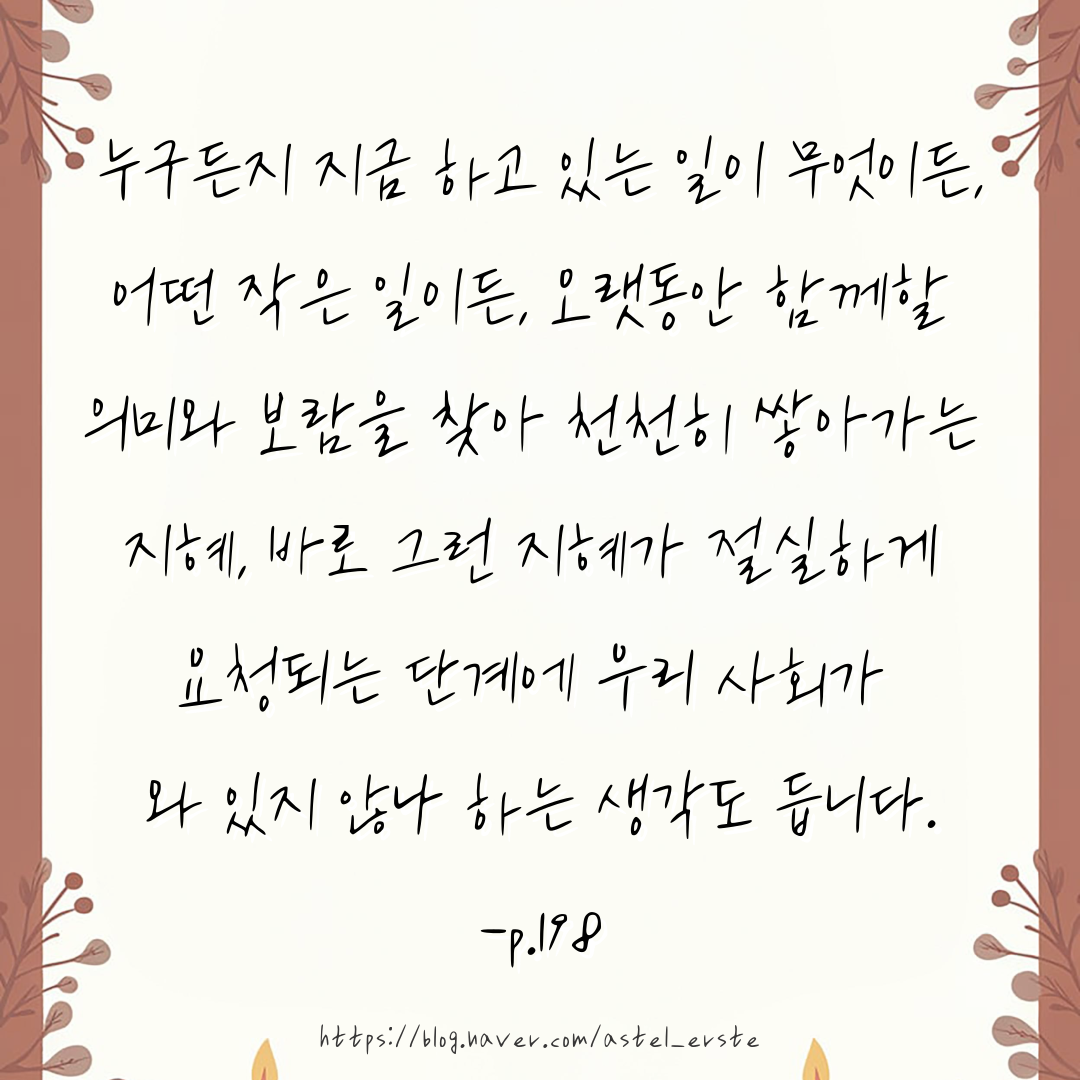 누구든지 지금 하고 있는 일이 무엇이든,
어떤 작은 일이든, 오랫동안 함께할
의미와 보람을 찾아 천천히 쌓아가는
지혜, 바로 그런 지혜가 절실하게
요청되는 단계에 우리 사회가
와 있지 않나 하는 생각도 듭니다.
-p.198
https://blog.naver.com/astel_erste